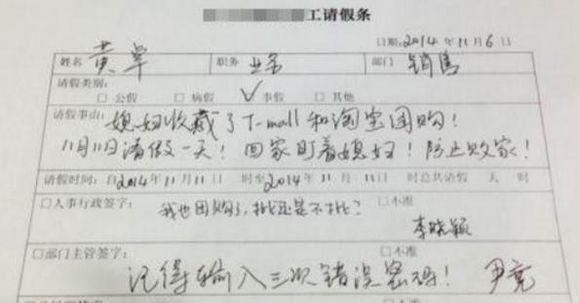 工请假条
日期:2014年11月6日
姓名 黄卓 职务 业务 部门 销售
请假类别:
□公假 □病假 ✓事假 □其他
请假事由: 媳妇收藏了T-mall和淘宝团购!
11月11日请假一天! 回家盯着媳妇! 防止败家!
请假时间: 自2014年11月11日 时至2014年11月11日 时总共请假 天 时
□人事行政签字: 我也团购了,批还是不批? □不准
李晓颖
□部门主管签字: □不准
记得输入三次错误密码! 尹亮